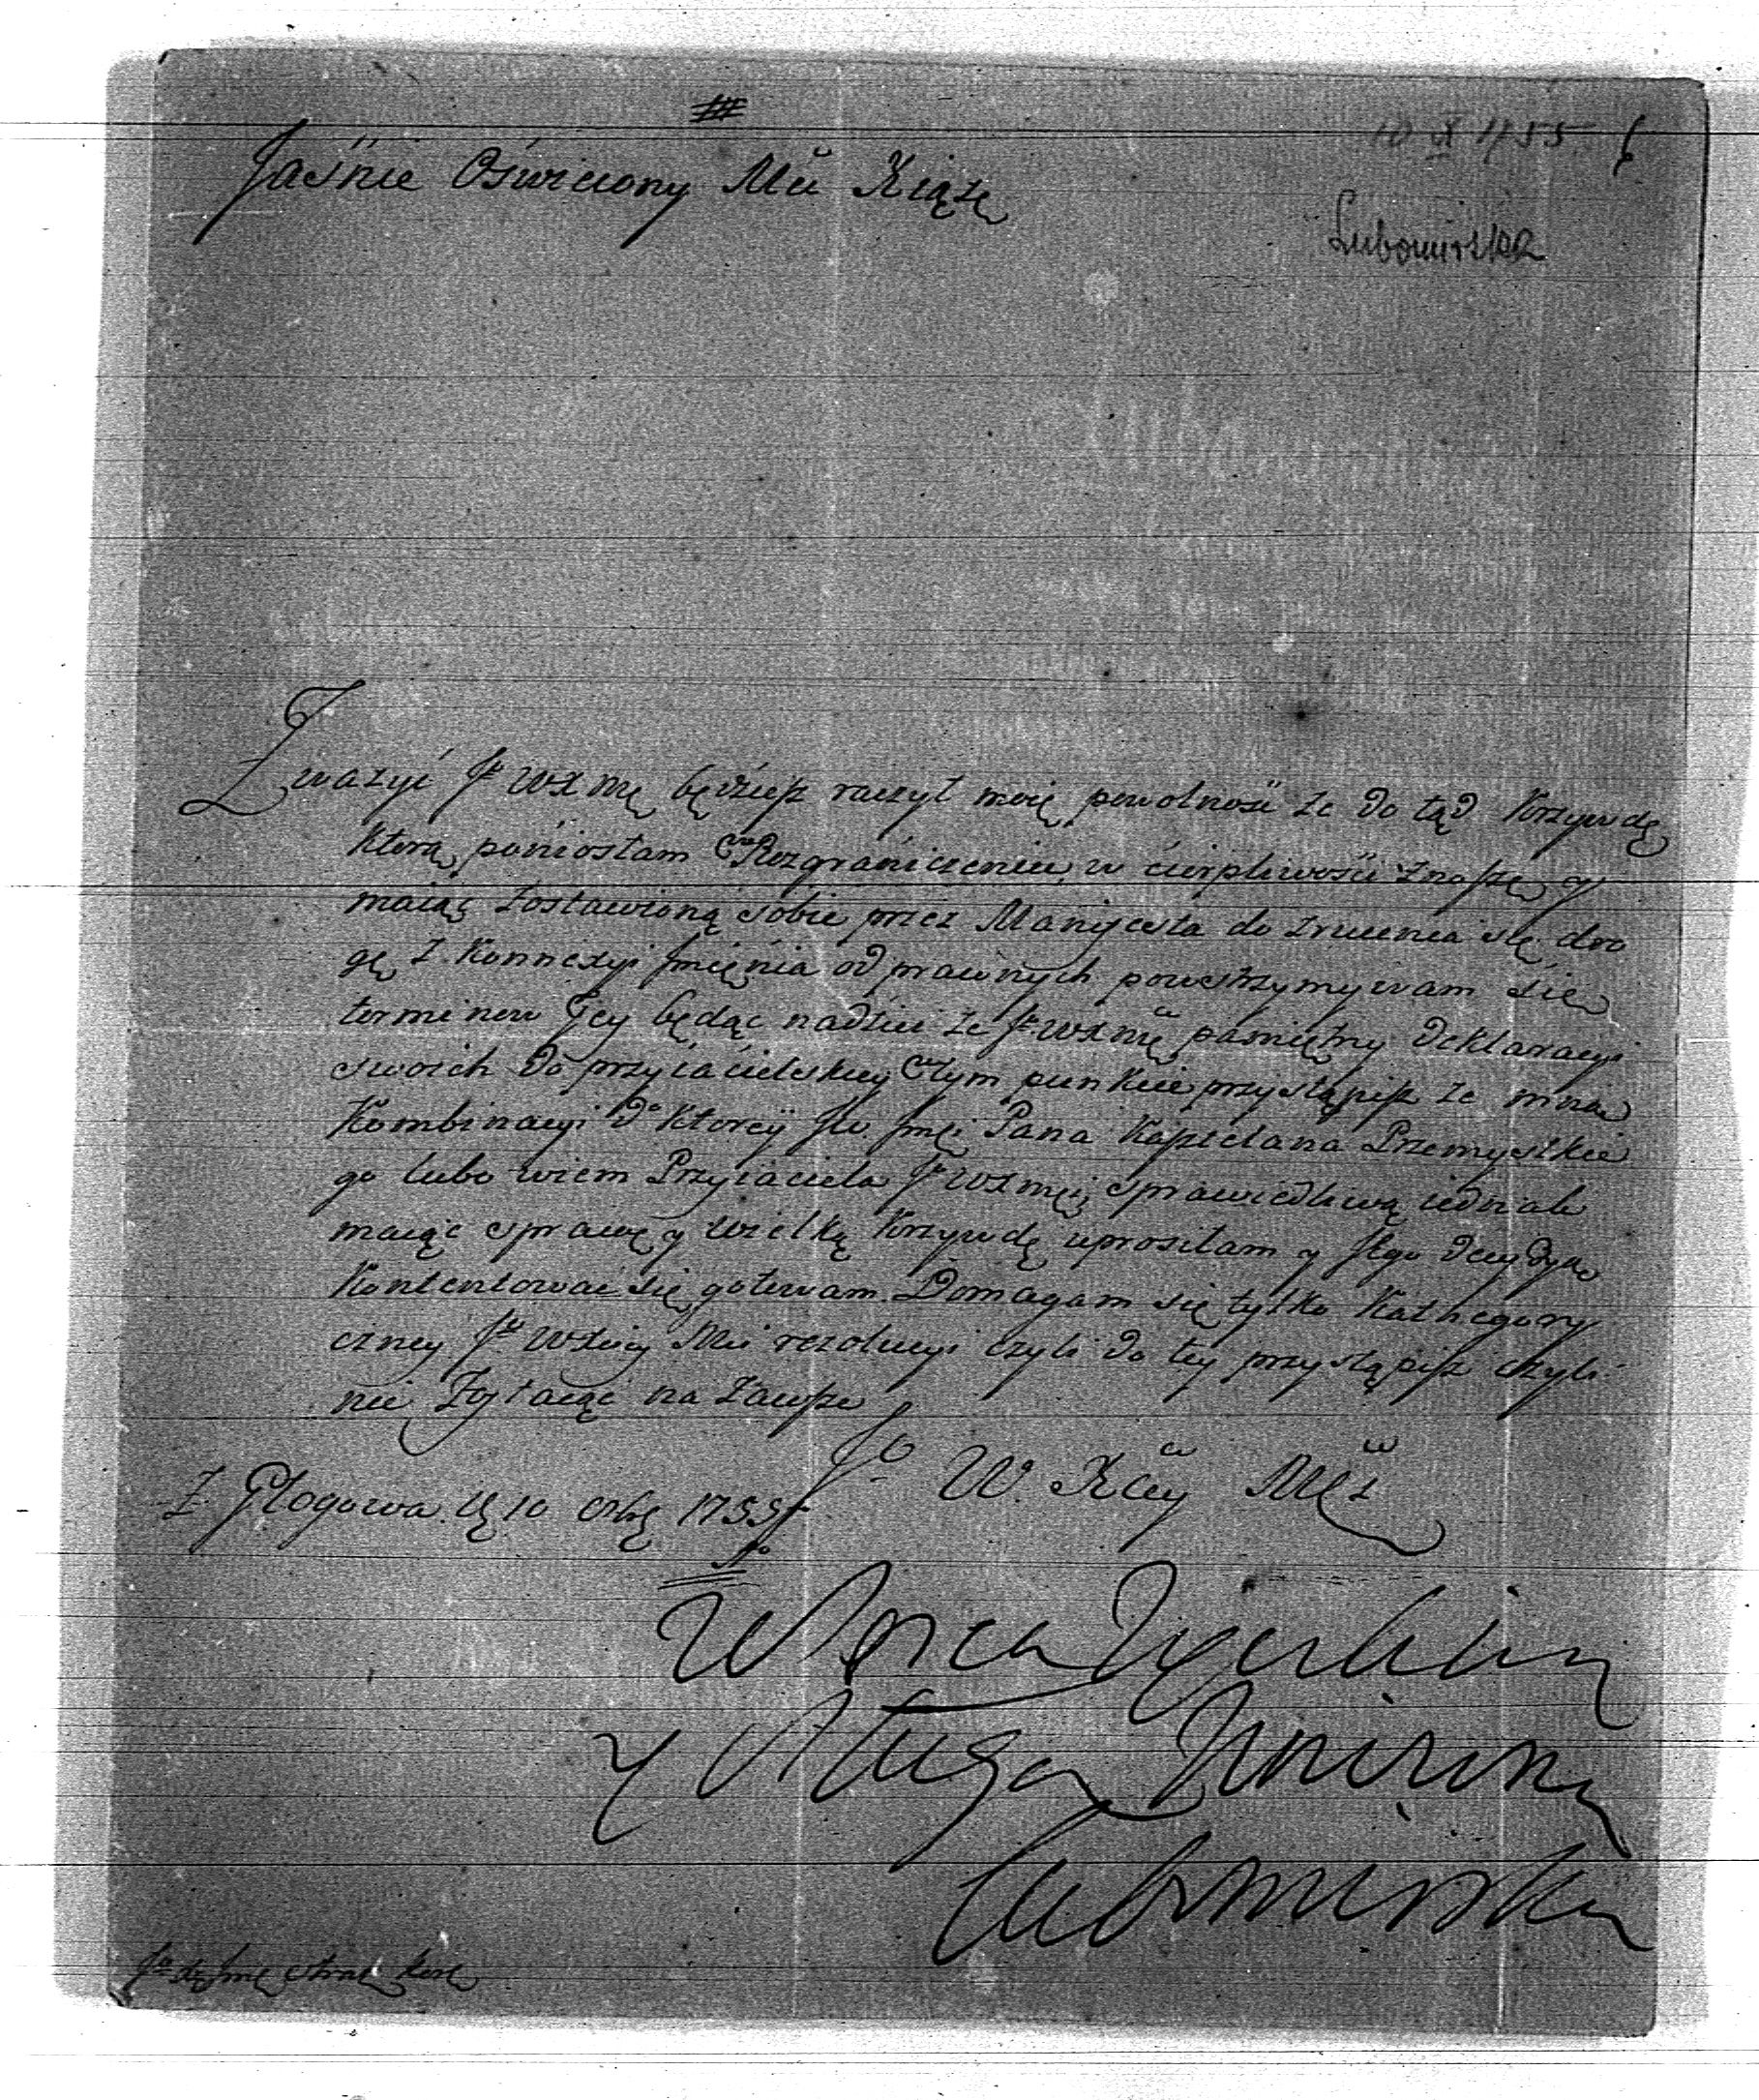 10 IX 1755
Jaśnie Oświecony Mći Xiąże
Lubomirska
Zwazyć Jo WXMć będziesz raczył moię powolność ze do tąd Krzywdę
Ktorą poniosłam w Rozgraniczeniu w cierpliwości znoszę y
maiąc zostawioną sobie przez Manifesta do zrucenia się dro
gę z Konnexyi Jmienia od prawnych powstrzymywam się
terminow Tey będąc nadziei ze Jo WXMć pamiętny Deklaracyi
swoich do przyiacielskiey w tym punkcie przystąpisz ze mną
Kombinacyi do Ktorey JW. Jmći Pana Kasztelana Przemyskie
go lubo wiem Przyiaciela Jo WXMći sprawiedliwą iednak
maiąc sprawę y wielką Krzywdę uprosiłam y Jego decyzyą
Kontentować się gotowam. Domagam się tylko Kathegory
czney Jo WXcey Mći rezolucyi czyli do tey przystąpisz czyli
nie Zostaiąc na zawsze
Jo W. Xcey Mći
Z Głogowa d. 10 7bra 1755
y sługa Unizona
Lubomirska